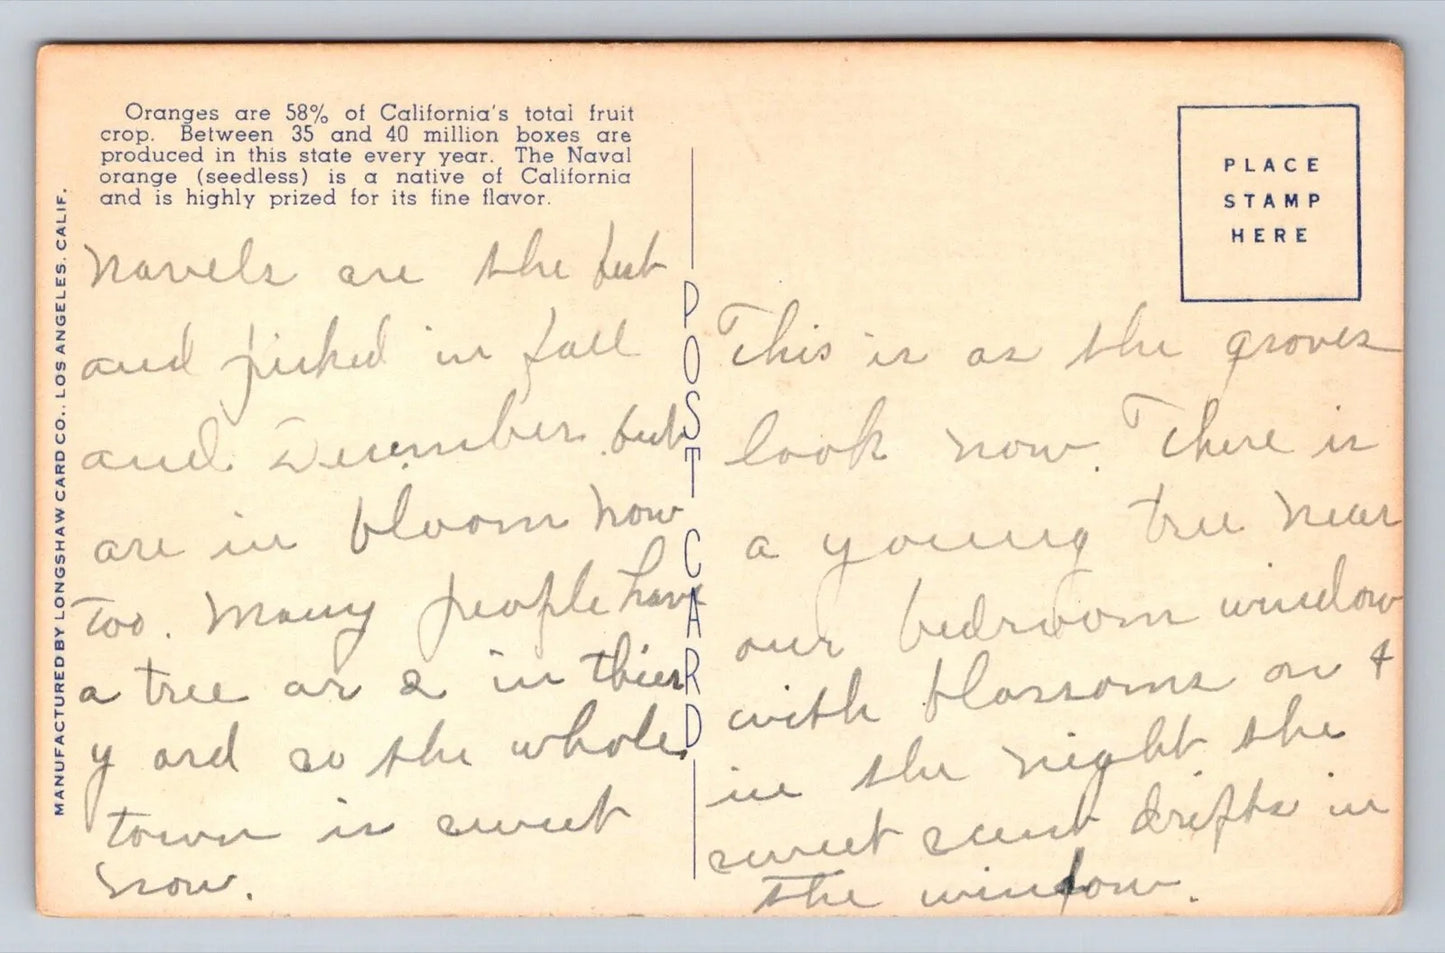 Oranges are 58% of California's total fruit
crop. Between 35 and 40 million boxes are
produced in this state every year. The Naval
orange (seedless) is a native of California
and is highly prized for its fine flavor.
MANUFACTURED BY LONGSHAW CARD CO., LOS ANGELES, CALIF.
Navels are the best
and picked in fall
and December but
are in bloom now
too. Many people have
a tree or 2 in thier
yard so the whole
town is sweet
now.
POST CARD
PLACE
STAMP
HERE
This is as the groves
look now. There is
a young tree near
our bedroom window
with blossoms on +
in the night the
sweet scent drifts in
the window.